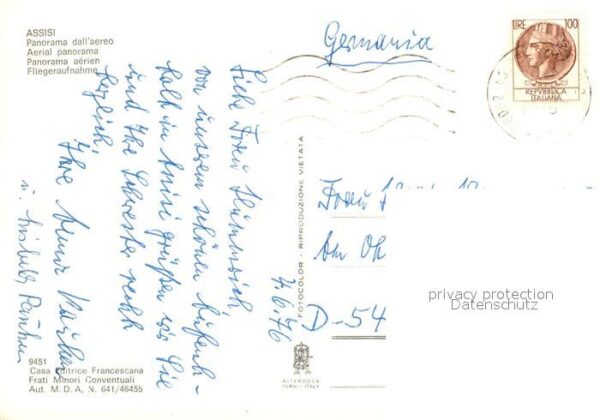 ASSISI
Panorama dall'aereo
Aerial panorama
Panorama aérien
Fliegeraufnahme
Germania
LIRE 100
REPVBBLICA
ITALIANA
7.6.76
Liebe Frau
von unserem schönen Aufent-
halt in Assisi grüßen wir Sie
und Ihre Schwester recht
herzlich,
Ihre
u.
FOTOCOLOR - RIPRODUZIONE VIETATA
Frau
Am
D-54
privacy protection
Datenschutz
9451
Casa Editrice Francescana
Frati Minori Conventuali
Aut. M. D. A. N. 641/46455
TERNI - ITALY